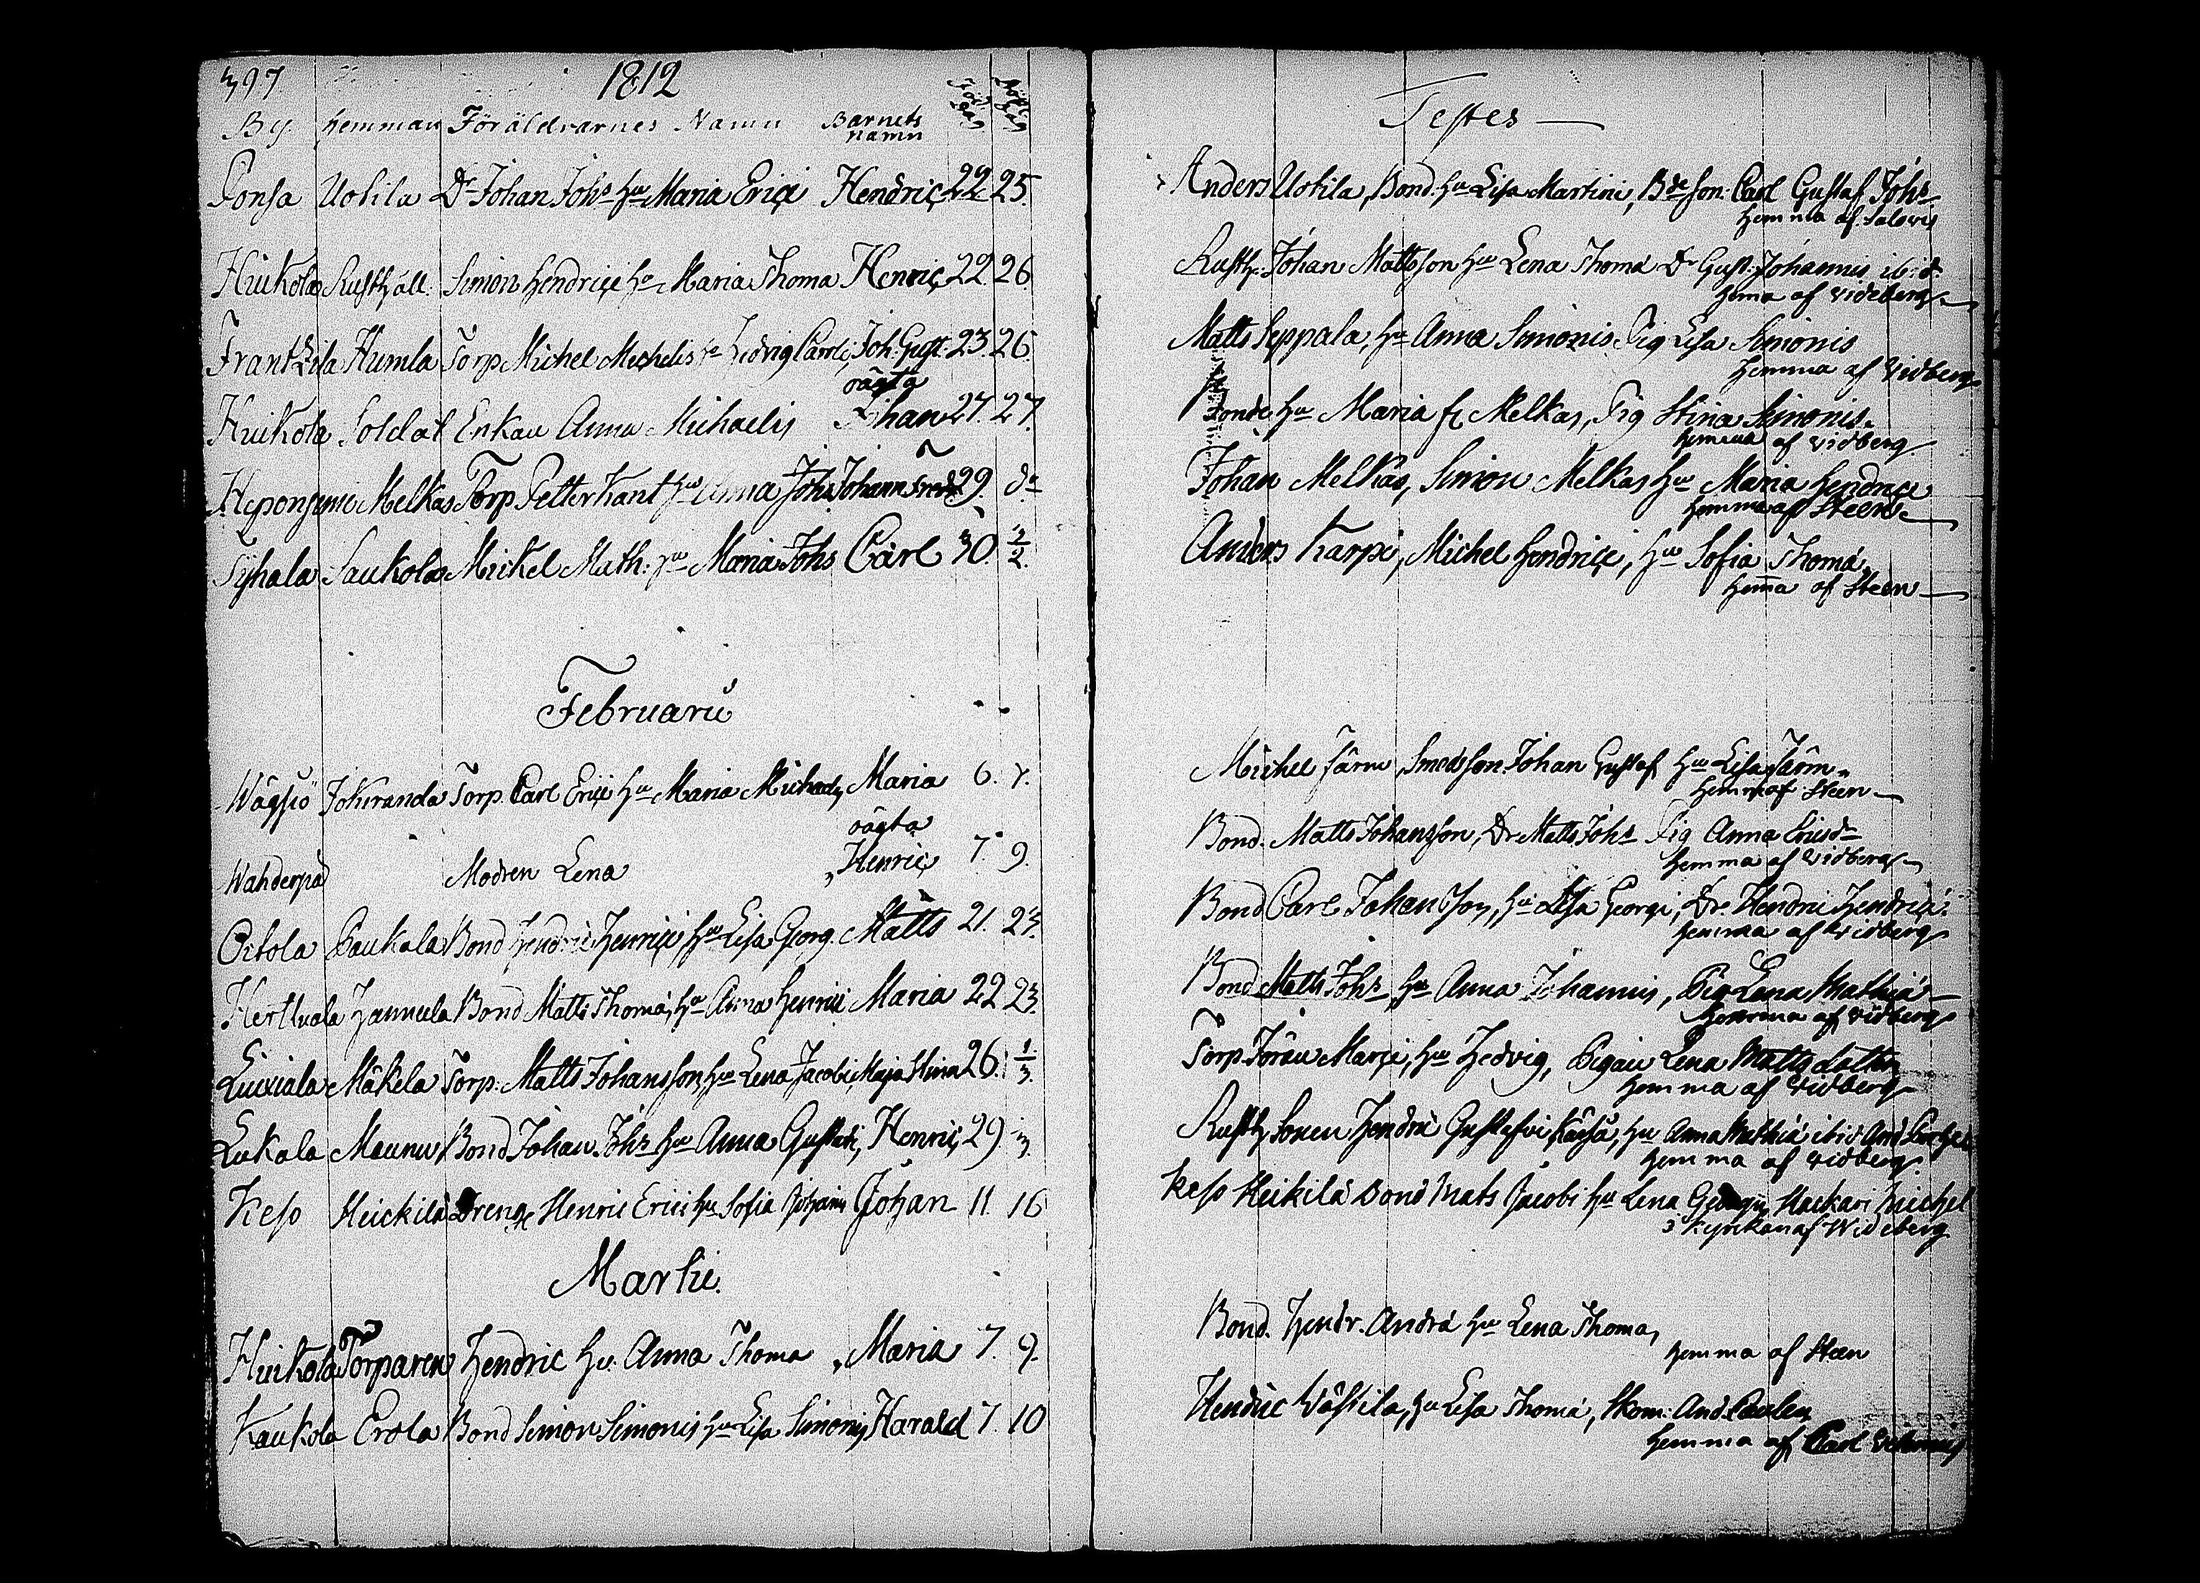 397 1812
By. Hemman Föräldrarnes Namn Barnets namn
Testes
Ponsa Uotila Dr Johan Johs hu Maria Erici Hendric 22 25.
Huikola Rusthåll. Simon Hendrici hu Maria Thoma Henric 22. 26
Frantsila Humla Torp. Michel Michelis hu Hedvig Caroli, Joh. Gust. 23. 26.
oägta
Huikola Soldat Enkan Anna Michaelis Johan 27. 27.
Melkas Torp. Petter Kant hu Anna Johs Johann 29. do
Syhala Saukola Mickel Math: hu Maria Johs Carl 30. 1/2.
Februarii
Jokiranda Torp. Carl Erici hu Maria Michaelis Maria 6. 7.
oägta
Modren Lena Henric 7. 9.
Paukala Bond Hendric Henrici hu Lisa Georg. Matts 21. 23.
Herttuala Hannula Bond Matts Thomá, hu Anna Henrici Maria 22 23.
Mäkelä Torp. Matts Johansson hu Lena Jacobi, Maja Stina 26. 1/3.
Lukala Maunu Bond Johan Johs hu Anna Gustavi, Henric 29
Keso Heickilä Dreng Henric Erici hu Sofia Johan 11. 16
Martii.
Huikola Torparen Hendric hu. Anna Thoma Maria 7. 9.
Kaukola Erola Bond Simon Simonis hu Lisa Simonis Harald 7. 10
Anders Uotila, Bond. hu Lisa Martini, Bde son: Carl Gustaf Johs
hemma af
Rusth. Johan Mattsson hu Lena Thomá Dr Gust. Johannis ibid.
hema af Videberg
Matts Seppala, hu Anna Simonis Pig Lisa Simonis
hemma af Vidberg
Bonde hu Maria fr Melkas, Pig Stina Simonis.
hemma af Vidberg
Johan Melkas, Simon Melkas hu Maria Hendrici
hemma af Steen
Anders Karpi, Michel Hendrici, hu Sofia Thomá,
hemma af Steen
Michel Järn, Smedson Johan Gustaf hu Lisa Järn
hemma af Steen
Bond. Matts Johansson, Dr Matts Johs Pig Anna Ericsdr
hemma af Vidberg
Bond Carl Johansson, hu Lisa Georgi, Dr Hendric Hendrici.
hemma af Vidberg
Bond Matts Johs hu Anna Johannis, Pig Lena Mathiá
hemma af Vidberg
Torp. Jöran hu Hedvig, Pigan Lena Matts
hemma af Vidberg
Rusth. Hendric hu Anna Mathiá ibid
hemma af Vidberg
Keso Heikilä Bond Mats Jacobi hu Lena Georgij Michel
i kyrkan af Wideberg
Bond. Hendr. Andrá hu Lena Thoma,
hemma af Steen
Hendric Wästila, hu Lisa Thomá, And. Paulen
hemma af Carl